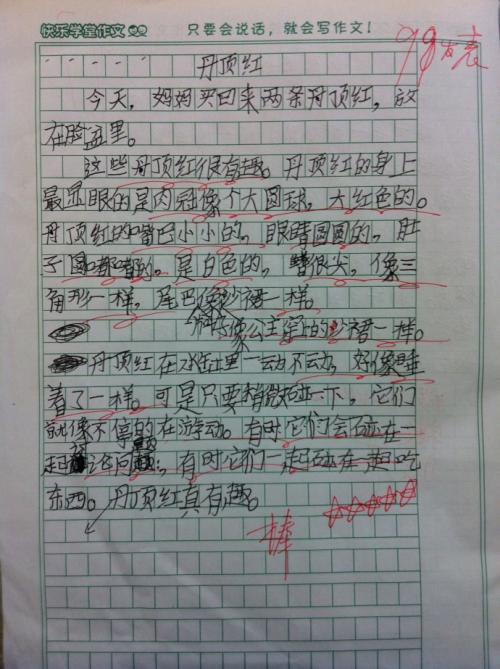 快乐学堂作文 只要会说话，就会写作文！
99 发表
丹顶红
今天，妈妈买回来两条丹顶红，放
在脸盆里。
这些丹顶红很有趣。丹顶红的身上
最显眼的是肉冠像个大圆球，大红色的。
丹顶红的嘴巴小小的，眼睛圆圆的，肚
子圆嘟嘟的，是白色的，鳍很尖，像三
角形一样，尾巴像纱裙一样。
像公主穿上的纱裙一样。
丹顶红在水缸里一动不动，好像睡
着了一样。可是只要稍微碰一下，它们
就像不停的在游动。有时它们会碰在一
起讨论问题，有时它们一起碰在一起吃
东西。丹顶红真有趣。
棒